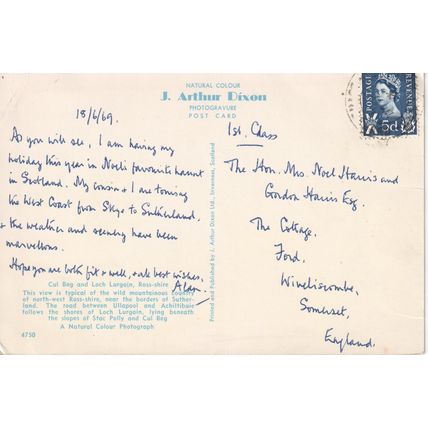 NATURAL COLOUR
J. Arthur Dixon
PHOTOGRAVURE
POST CARD
18/6/69.
As you will see, I am having my
holiday this year in Noel's favourite haunt
in Scotland. My cousin & I are touring
the West Coast from Skye to Sutherland.
& the weather and scenery have been
marvellous.
Hope you are both fit & well, & all best wishes.
Alan.
Cul Beg and Loch Lurgain, Ross-shire
This view is typical of the wild mountainous country
of north-west Ross-shire, near the borders of Suther-
land. The road between Ullapool and Achiltibuie
follows the shores of Loch Lurgain, lying beneath
the slopes of Stac Polly and Cul Beg
A Natural Colour Photograph
4750
Printed and Published by J. Arthur Dixon Ltd., Inverness, Scotland
POSTAGE
REVENUE
5d
1st. Class
The Hon. Mrs. Noel Harris and
Gordon Harris Esq.
The Cottage,
Ford,
Wiveliscombe,
Somerset,
England.